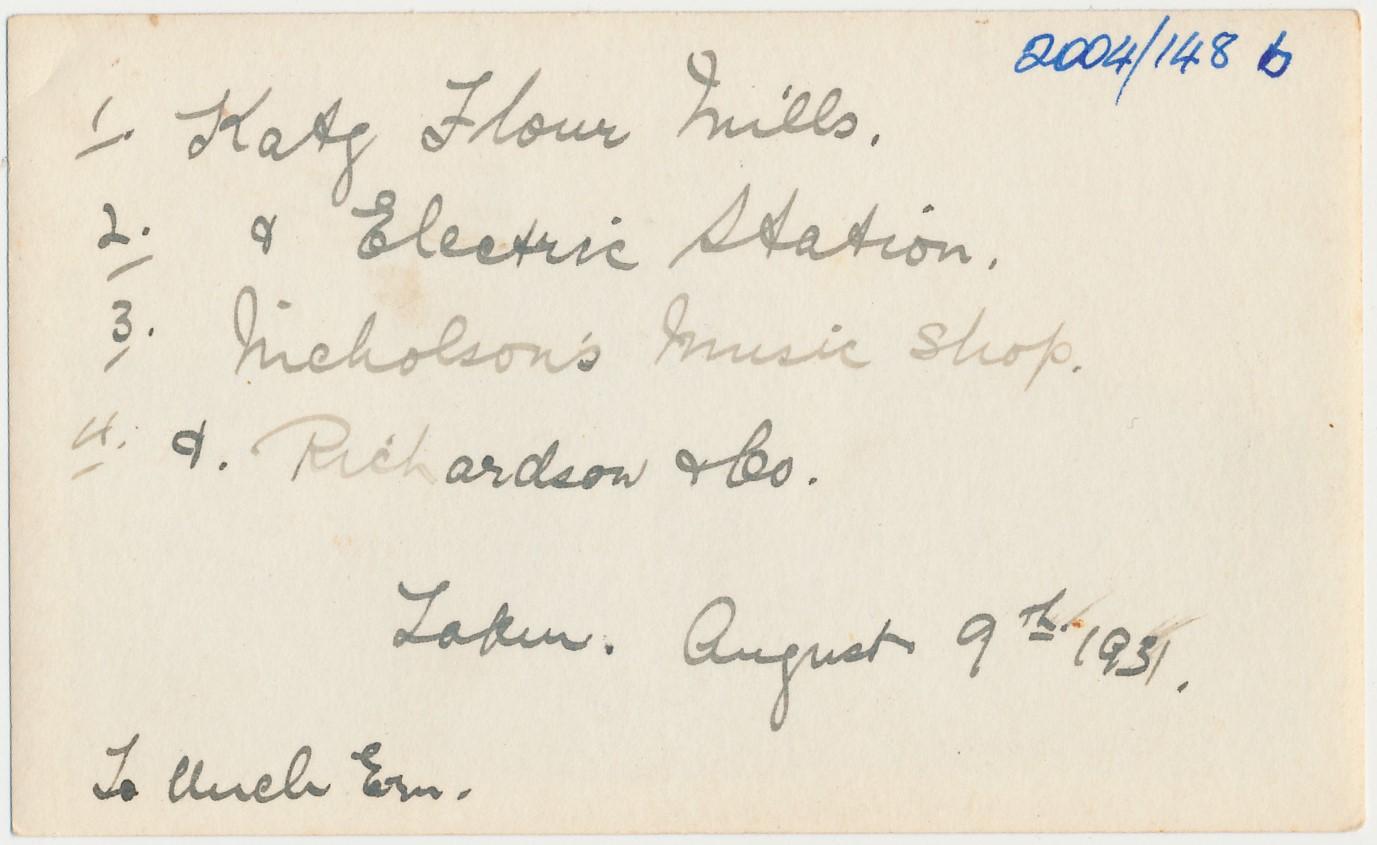 2004/148 b
1. Katg Flour Mills.
2. & Electric Station.
3. Nicholson's Music Shop.
4. &. Richardson & Co.
Taken. August 9th. 1931.
To Uncle Ern.